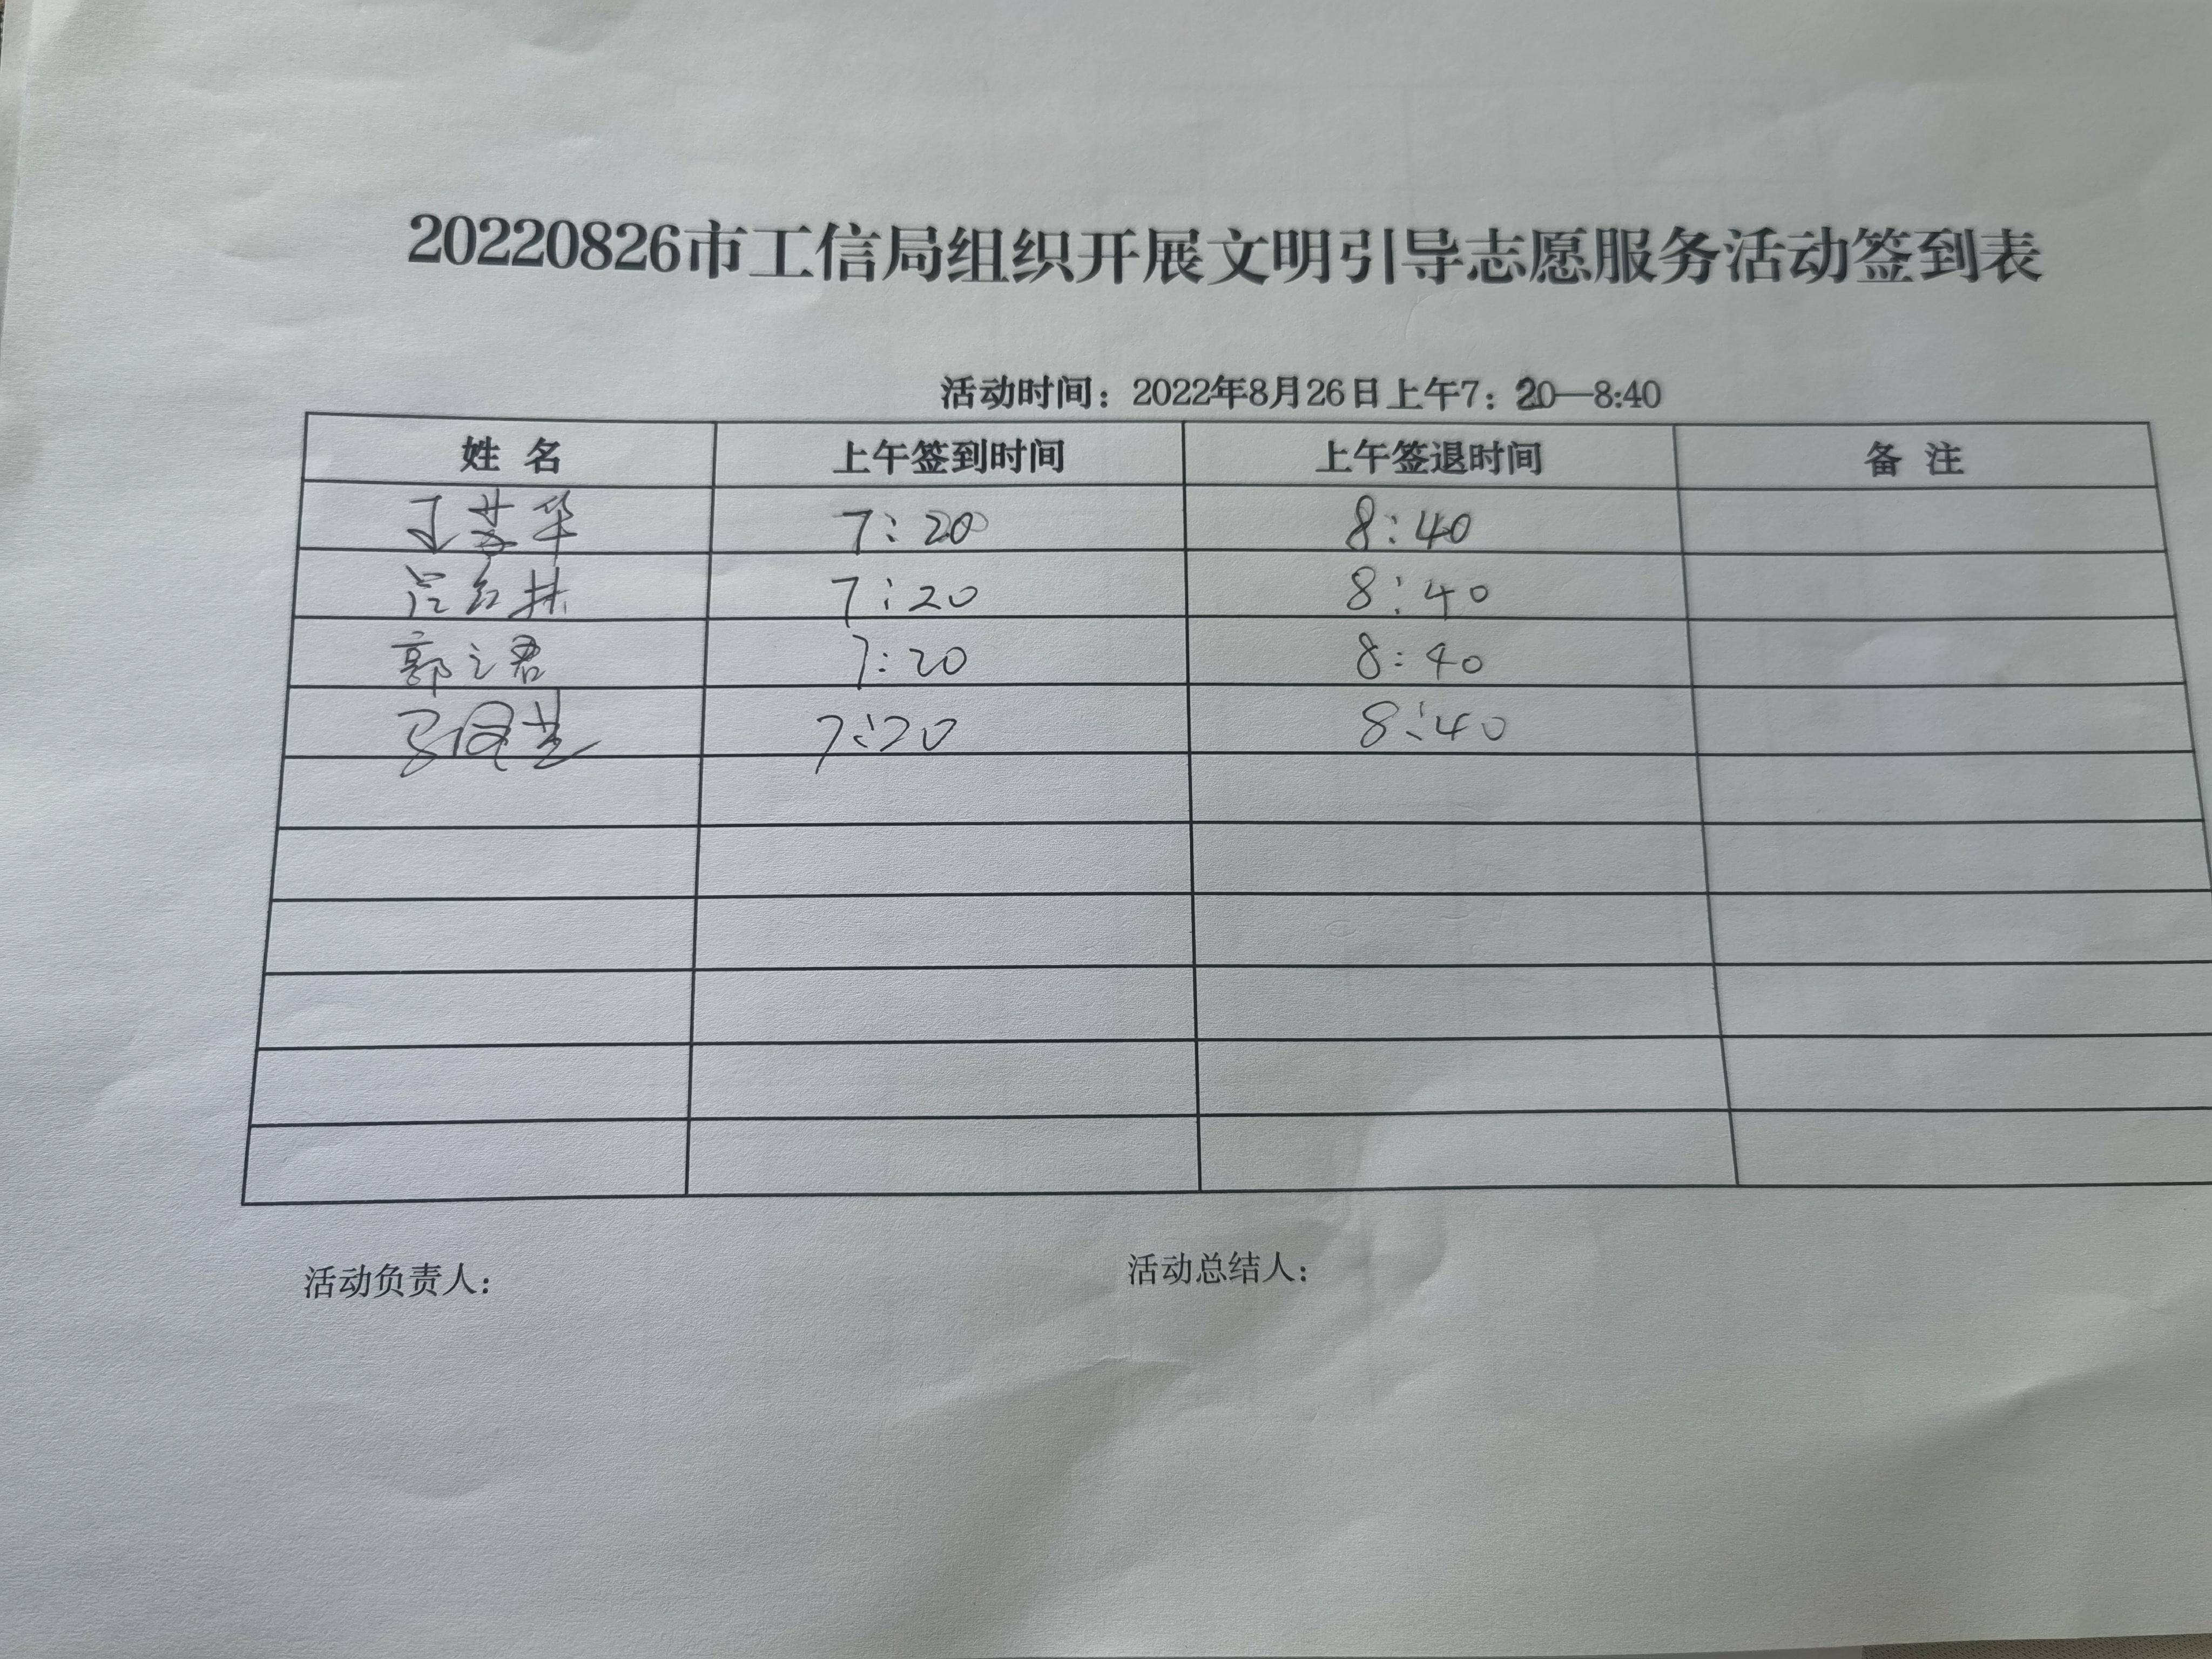 20220826市工信局组织开展文明引导志愿服务活动签到表
活动时间：2022年8月26日上午7：20—8:40
姓 名 上午签到时间 上午签退时间 备 注
华 7:20 8:40
7:20 8:40
郭之君 7:20 8:40
7:20 8:40
活动负责人： 活动总结人：